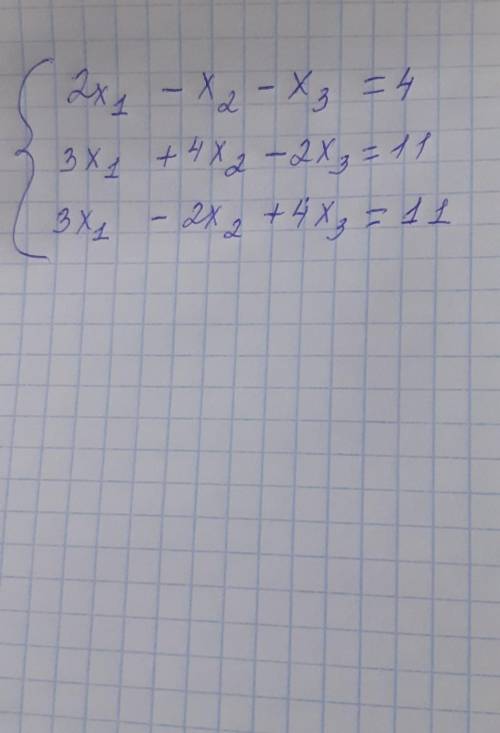 2x₁ - x₂ - x₃ = 4
3x₁ + 4x₂ - 2x₃ = 11
3x₁ - 2x₂ + 4x₃ = 11